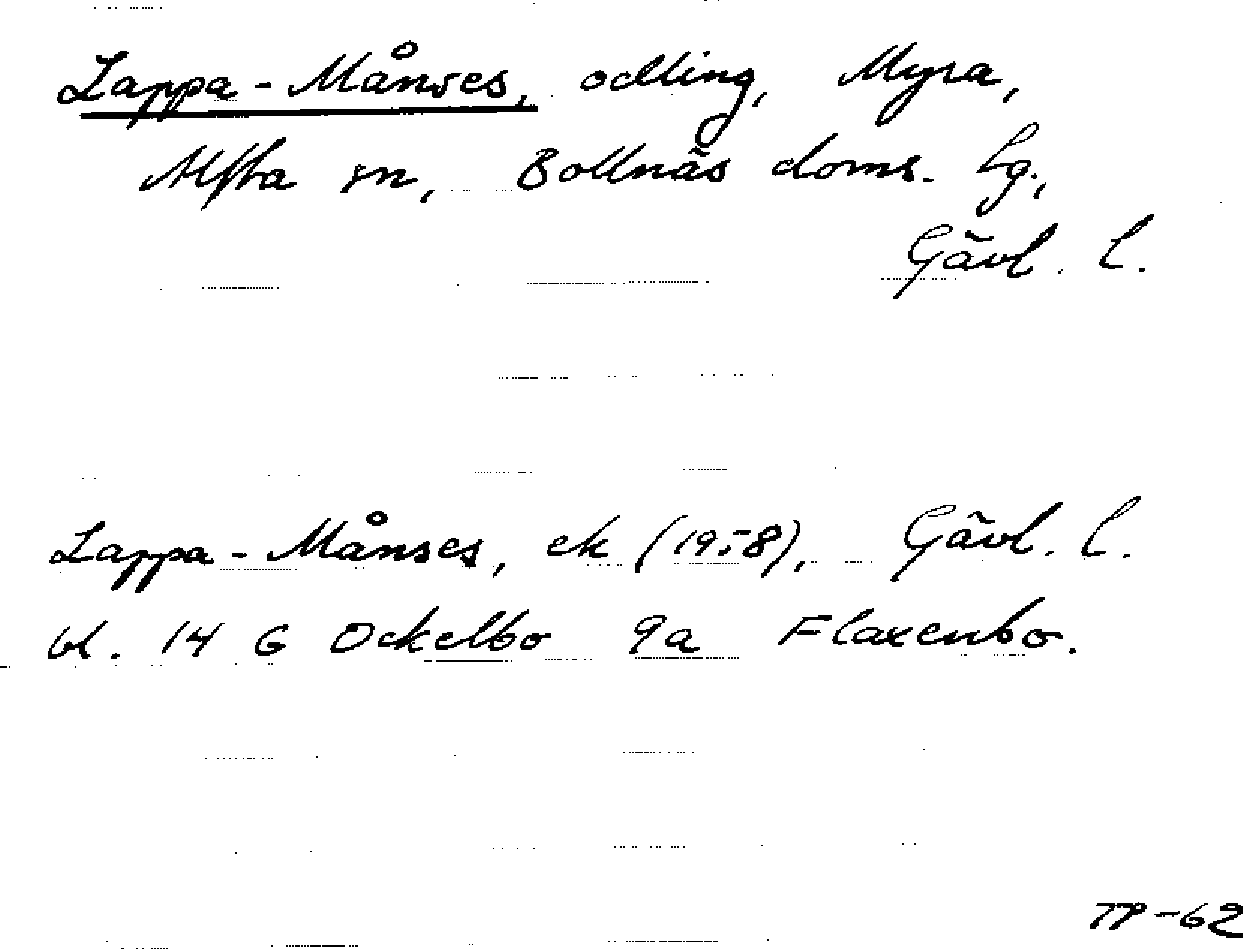 Lappa-Månses, odling, Myra,
Alfta sn, Bollnäs doms. lg,
Gävl. l.
Lappa-Månses, ek (1958), Gävl. l.
bl. 14 G Ockelbo 9a Flaxenbo.
TP-62